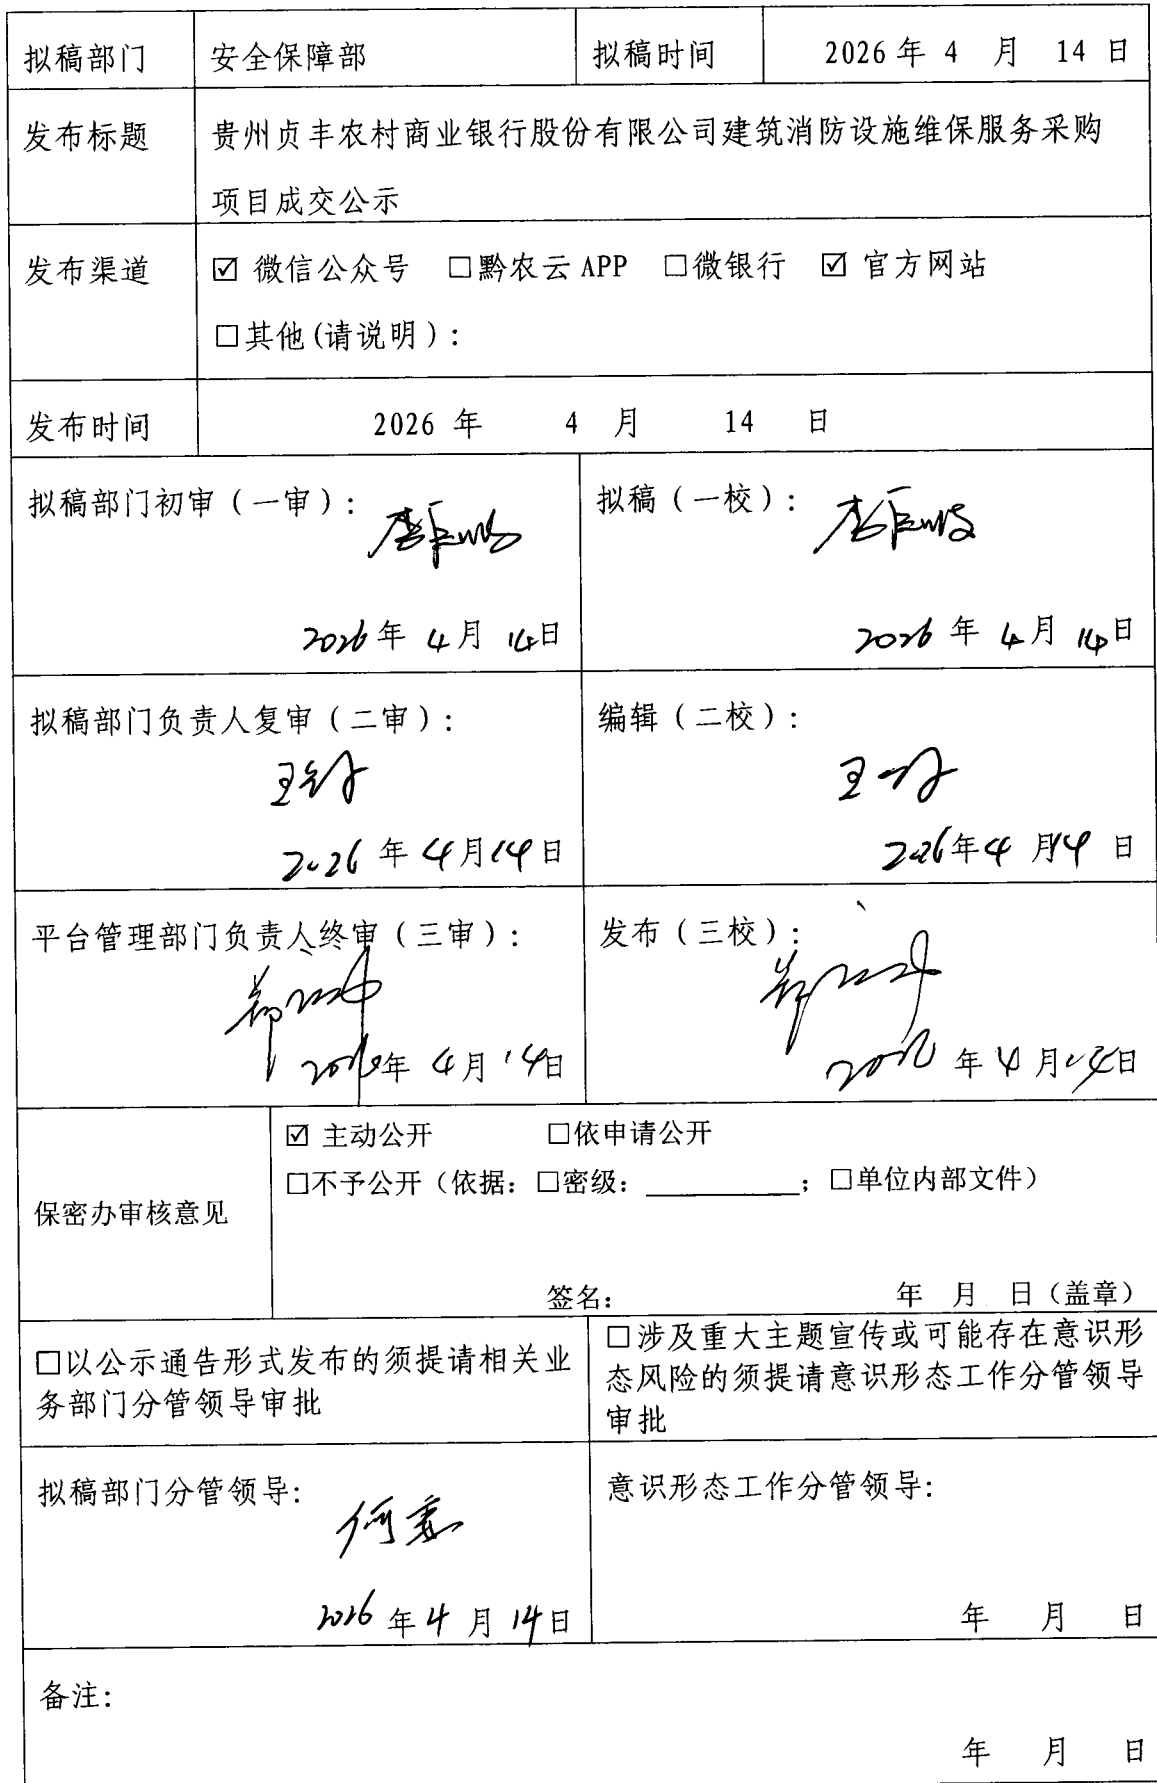 拟稿部门 安全保障部 拟稿时间 2026年 4 月 14 日
发布标题 贵州贞丰农村商业银行股份有限公司建筑消防设施维保服务采购
项目成交公示
发布渠道 ☑ 微信公众号 □黔农云 APP □微银行 ☑ 官方网站
□其他(请说明)：
发布时间 2026 年 4 月 14 日
拟稿部门初审（一审）：
2026年 4月 14日
拟稿（一校）：
2026 年 4月 14日
拟稿部门负责人复审（二审）：
2026 年 4月14日
编辑（二校）：
2026年4 月14 日
平台管理部门负责人终审（三审）：
2026年 4月 14日
发布（三校）：
2026 年 4 月14日
保密办审核意见
☑ 主动公开 □依申请公开
□不予公开（依据：□密级：__________；□单位内部文件）
签名： 年 月 日（盖章）
□以公示通告形式发布的须提请相关业
务部门分管领导审批
□涉及重大主题宣传或可能存在意识形
态风险的须提请意识形态工作分管领导
审批
拟稿部门分管领导:
2026 年 4 月 14日
意识形态工作分管领导:
年 月 日
备注:
年 月 日